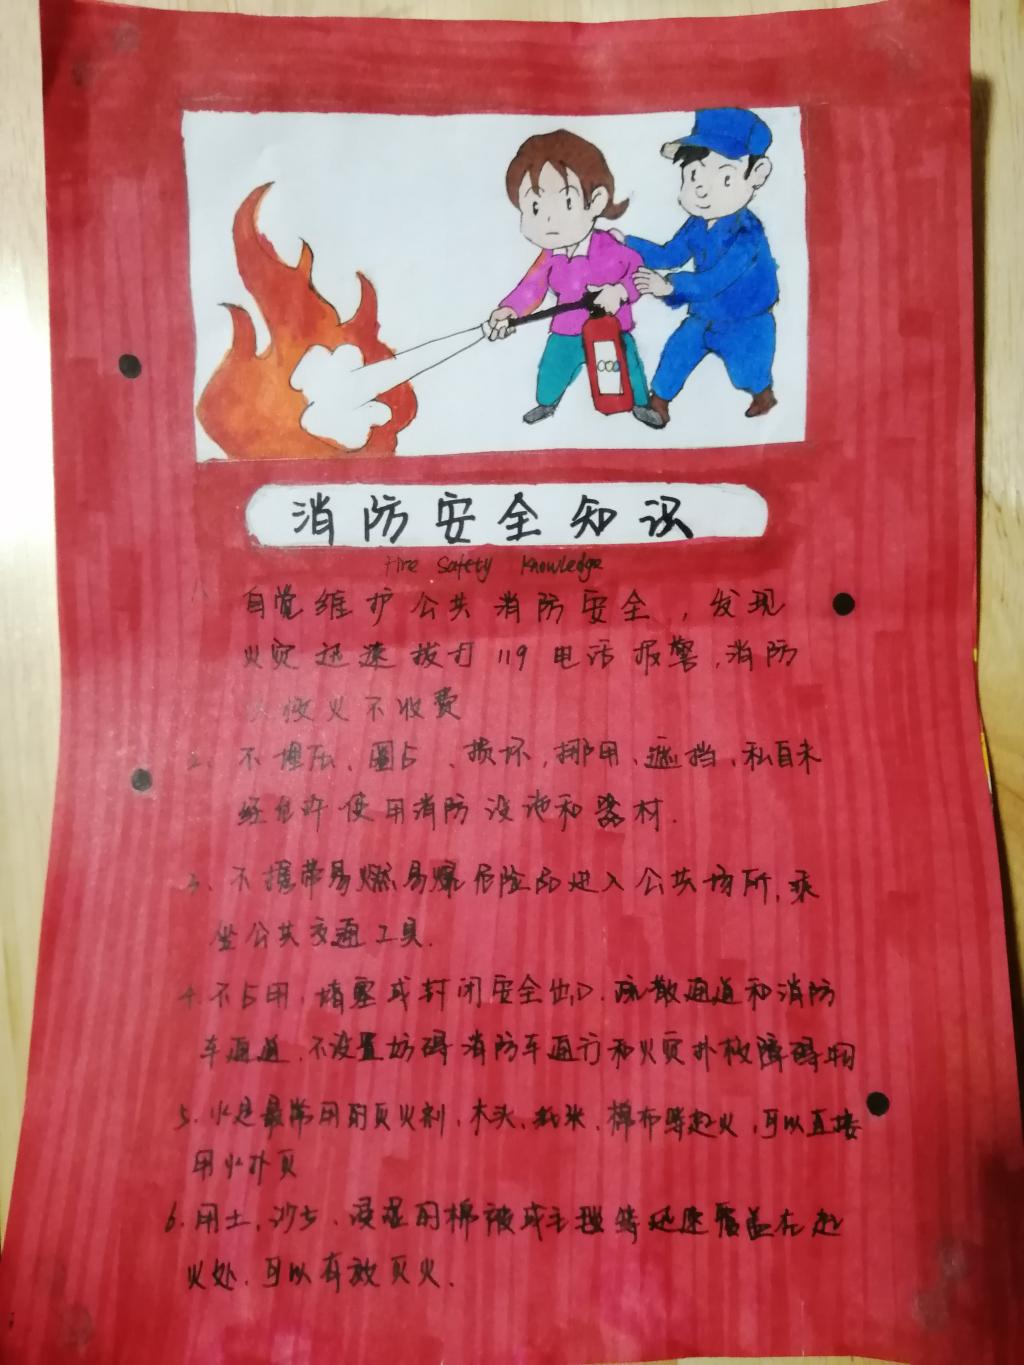 消防安全知识
Fire Safety Knowledge
自觉维护公共消防安全，发现
火灾迅速拔打119电话报警，消防
救火不收费
2、不埋压、圈占、损坏，挪用、遮挡、私自未
经允许使用消防设施和器材.
3、不携带易燃易爆危险品进入公共场所，乘
坐公共交通工具.
4、不占用，堵塞或封闭安全出口、疏散通道和消防
车通道、不设置妨碍消防车通行和火灾扑救障碍物
5、水是最常用的灭火剂，木头、纸张、棉布等起火，可以直接
用水扑灭
6、用土、沙土、浸湿的棉被或毛毯等迅速覆盖在起
火处、可以有效灭火.